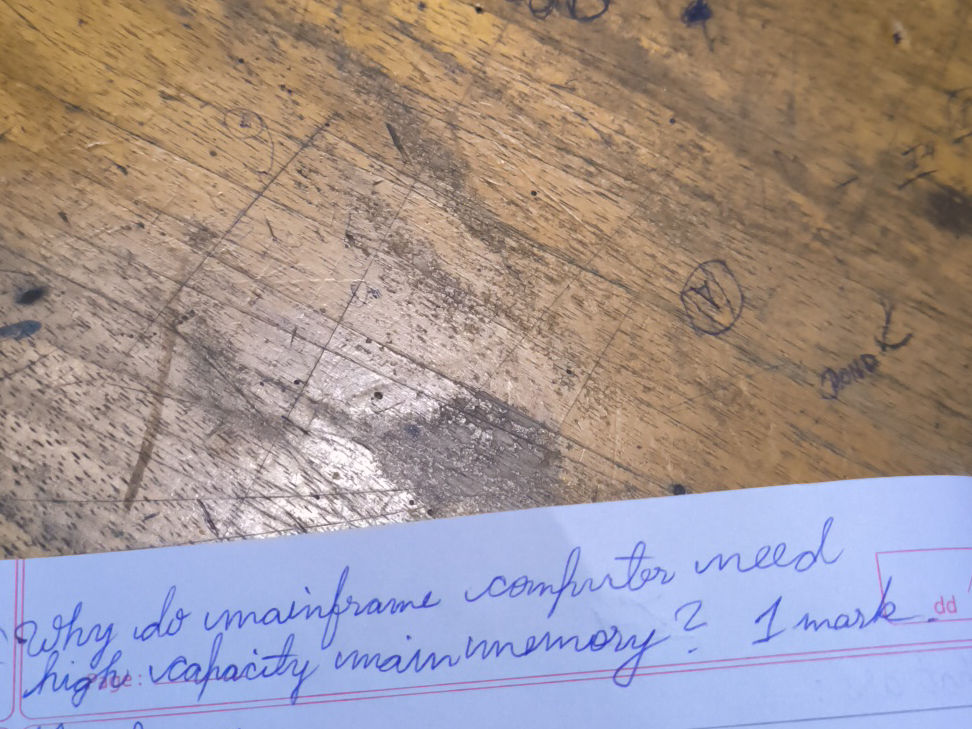 A
BOND
Why do mainframe computer need
high capacity main memory? 1 mark.
Page:
dd